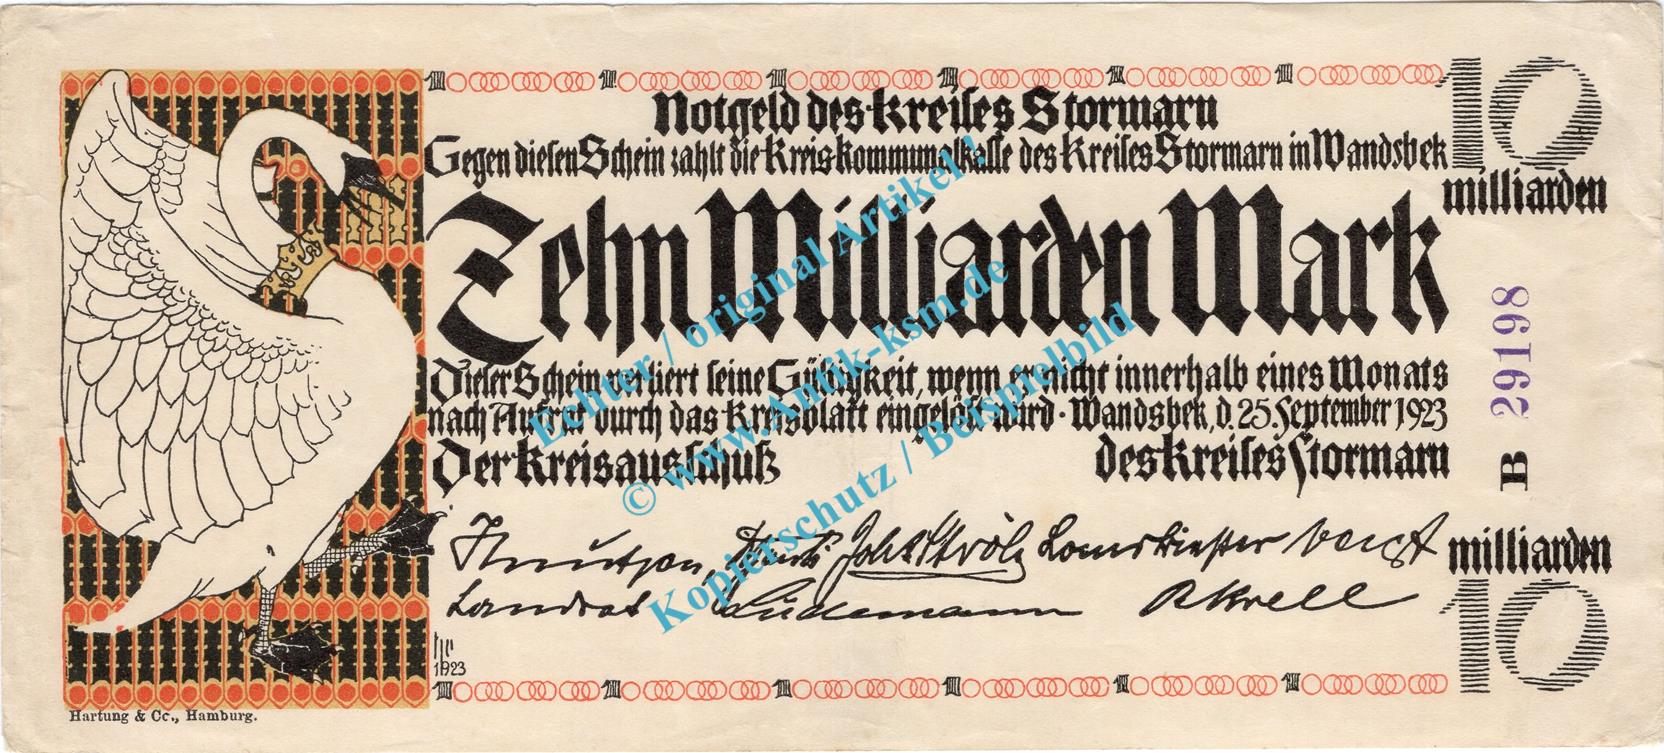 Notgeld des Kreises Stormarn
Gegen diesen Schein zahlt die Kreiskommunalkasse des Kreises Stormarn in Wandsbek
10
milliarden
Zehn Milliarden Mark
Dieser Schein verliert seine Gültigkeit, wenn er nicht innerhalb eines Monats
nach Aufruf durch das Kreisblatt eingelöst wird · Wandsbek, d. 25. September 1923
Der Kreisausschuß des Kreises Stormarn
B 29198
Knutzen, Joh. Ströh
Landrat Lüdemann R Krell
milliarden
10
1923
Hartung & Co., Hamburg.
Echter / original Artikel !
© www.Antik-ksm.de
Kopierschutz / Beispielbild